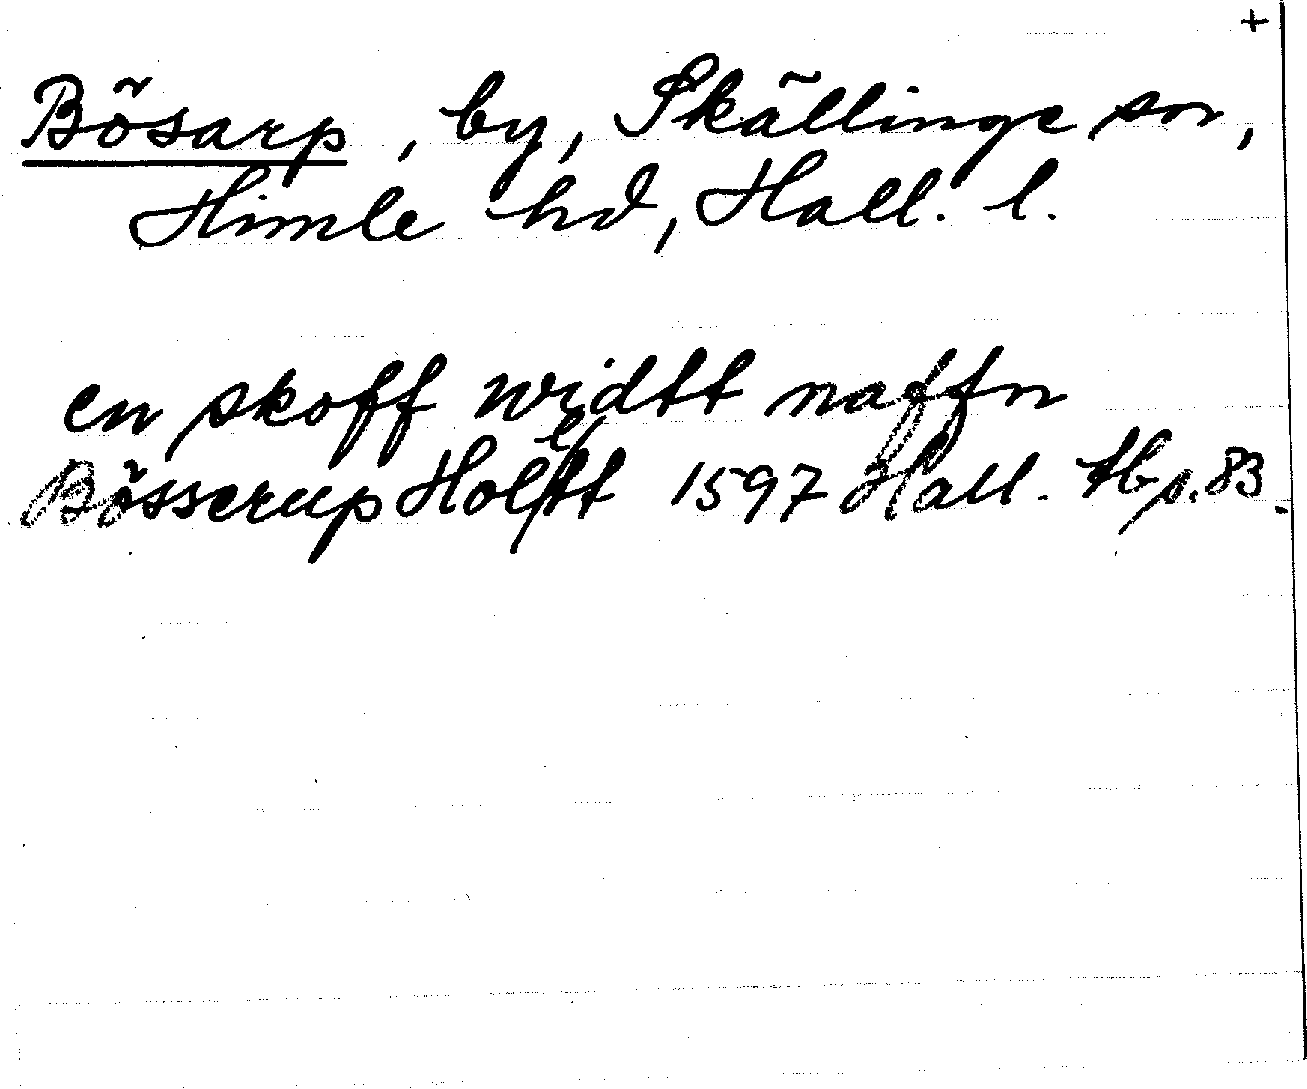 +
Bösarp, by, Skällinge sn,
Himle hd, Hall. l.
en skoff widtt naffn
Bösserup Holftt 1597 Hall. tb p. 83.